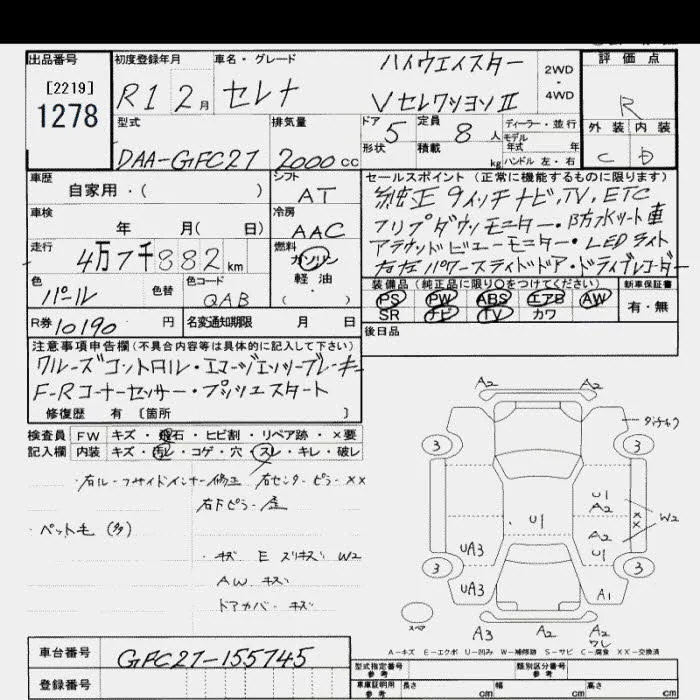 出品番号 初度登録年月 車名・グレード 評価点
[2219]
1278
R1 2月 セレナ ハイウェイスター 2WD・4WD
Vセレクション II
R
型式 排気量 ドア 定員 ディーラー・並行 外装 内装
DAA-GFC27 2000cc 5 8人 モデル年式 年
形状 積載 kg ハンドル 左・右 C D
車歴 シフト セールスポイント (正常に機能するものに限ります)
自家用・( ) AT 純正9インチナビ,TV,ETC
車検 冷房 フリップダウンモニター・防水シート車
年 月( 日) AAC アラウンドビューモニター・LEDライト
走行 燃料 左右パワースライドドア・ドライブレコーダー
4万7千882km ガソリン
軽油
( )
色 色替 色コード 装備品 (純正品に限り○をつけてください) 新車保証書
パール QAB PS PW ABS エアB AW 有・無
SR ナビ TV カワ
R券 10190円 名変通知期限 月 日 後日品
注意事項申告欄 (不具合内容等は具体的に記入して下さい)
クルーズコントロル・エマージェンシーブレーキ
F-Rコーナーセンサー・プッシュスタート
修復歴 有 〔箇所 〕
検査員 FW キズ・飛石・ヒビ割・リペア跡・×要
記入欄 内装 キズ・汚レ・コゲ・穴・スレ・キレ・破レ
・右ルーフサイドインナー修正 右センターピラー××
右Fピラー歪
・ペット毛(多)
・キズ E スリキズ W2
AW キズ
ドアカバーキズ
A2 A2
3 3
U1 A2
U1
×× W2
A2 U1
UA3
3 3
UA3 A1
スペア
A3 A2 A2
ワレ
A-キズ E-エクボ U-凹み W-補修跡 S-サビ C-腐食 XX-交換済
車台番号 GFC27-155745
登録番号
型式指定番号 参考 類別区分番号 参考
車庫証明用 参考 長さ cm 幅 cm 高さ cm